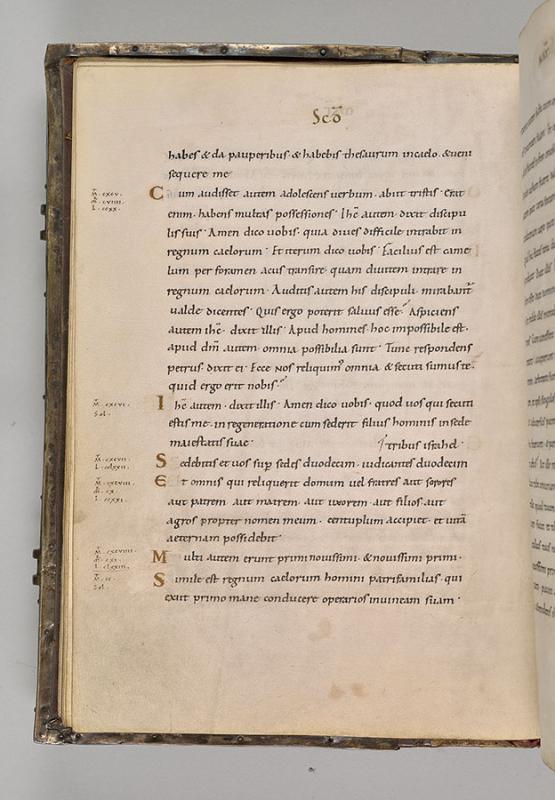 Scd̄
habes & da pauperibus & habebis thesaurum incaelo. & ueni
sequere me
M̄. cxcv.
c̄. cviiii.
L. ccxx.
Cum audisset autem adolescens uerbum. abiit tristis. Erat
enim. habens multas possessiones. Ihc̄ autem. dixit discipu
lis suis. Amen dico uobis. quia diues difficile intrabit in
regnum caelorum. Et iterum dico uobis. Facilius est came
lum per foramen acus transire. quam diuitem intrare in
regnum caelorum. Auditis autem his discipuli. mirabant᷑
ualde dicentes. Quis ergo poterit saluus esse. Aspiciens
autem ihc̄. dixit illis. Apud homines. hoc impossibile est.
apud dm̄ autem. omnia possibilia sunt. Tunc respondens
petrus. dixit ei. Ecce nos reliquimꝰ omnia & secuti sumus te.
quid ergo erit nobis.
M̄. cxcvi.
Sol.
Ihc̄ autem. dixit illis. Amen dico uobis. quod uos qui secuti
estis me. in regeneratione cum sederit filius hominis in sede
maiestatis suae. tribus israhel.
M̄. cxcvii.
L. cclxxii.
Sedebitis et uos sup̄ sedes duodecim. iudicantes duodecim
M̄. cxcviii.
L. ccxxi.
Et omnis qui reliquerit domum uel fratres aut sorores
aut patrem. aut matrem. aut uxorem. aut filios. aut
agros propter nomen meum. centuplum accipiet. et uitā
aeternam possidebit.
M̄. cxcviiii.
c̄. cxi.
L. clxxiii.
Multi autem erunt primi nouissimi. & nouissimi primi.
M̄. cc.
Sol.
Simile est regnum caelorum homini patrifamilias. qui
exiit primo mane conducere operarios inuineam suam.